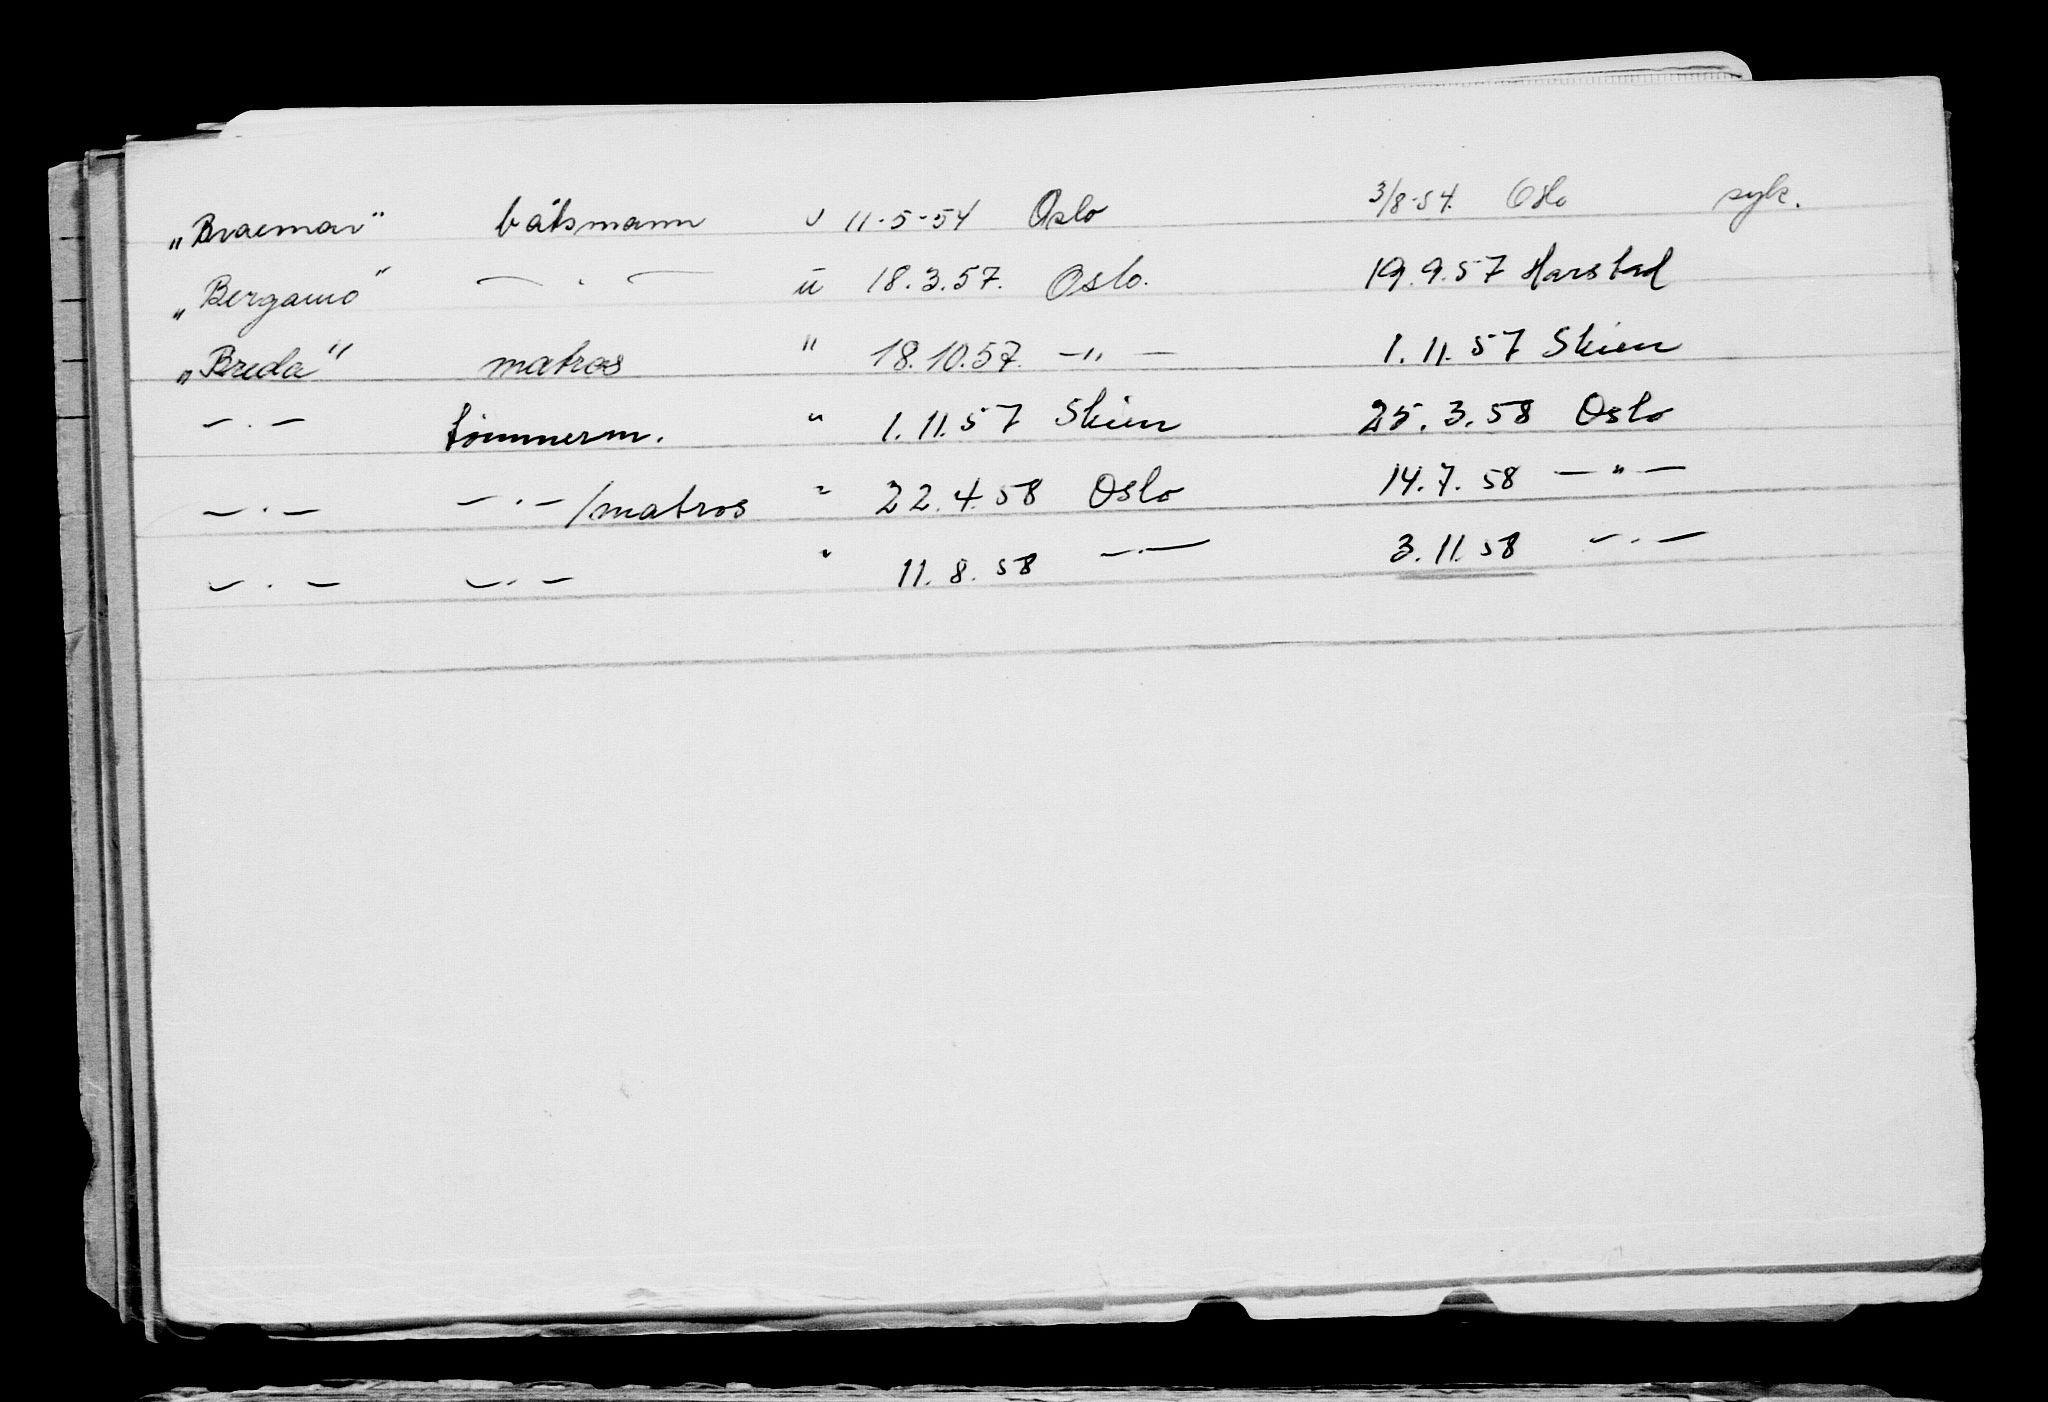 „Braemar" båtsmann u 11-5-54 Oslo 3/8-54. Oslo syk.
„Bergamo" — . — u 18.3.57. Oslo. 19.9.57 Harstad
„Breda" matros " 18.10.57. —"— 1.11.57 Skien
— . — tømmerm. " 1.11.57 Skien 25.3.58 Oslo
— . — — . — /matros " 22.4.58 Oslo 14.7.58 —"—
— . — — . — " 11.8.58 — . — 3.11.58 — . —